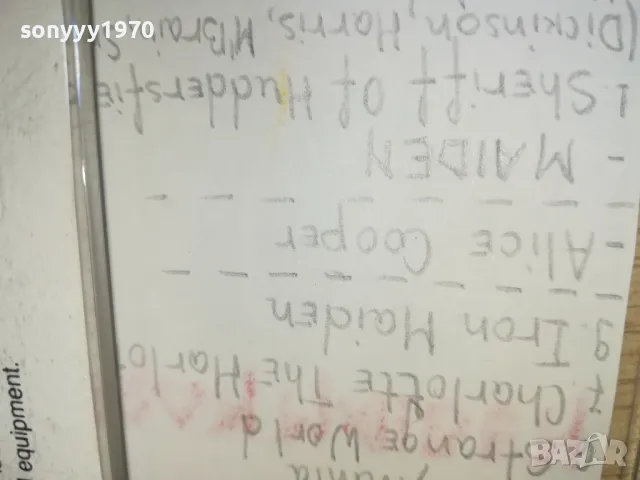 sonyyy1970
Strange World
7. Charlotte The Harlo
9. Iron Maiden
- Alice Cooper
- MAIDEN
1. Sheriff Of Huddersfie
(Dickinson, Harris, M'Brai
equipment.
BAZAR